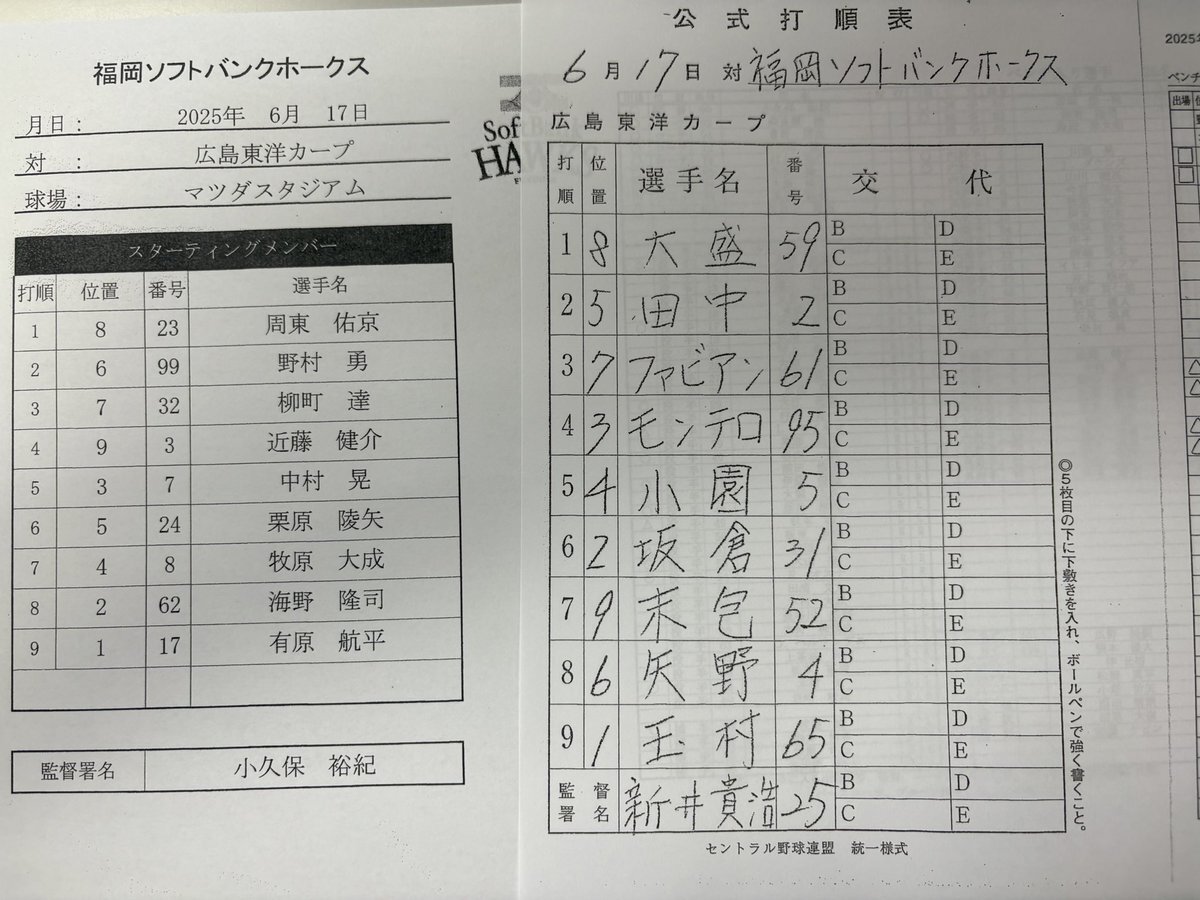 福岡ソフトバンクホークス
月日： 2025年 6月 17日
対 ： 広島東洋カープ
球場： マツダスタジアム
スターティングメンバー
打順 位置 番号 選手名
1 8 23 周東 佑京
2 6 99 野村 勇
3 7 32 柳町 達
4 9 3 近藤 健介
5 3 7 中村 晃
6 5 24 栗原 陵矢
7 4 8 牧原 大成
8 2 62 海野 隆司
9 1 17 有原 航平
監督署名 小久保 裕紀
Sof
HA
公式打順表
6月17日 対 福岡ソフトバンクホークス
広島東洋カープ
打順 位置 選手名 番号 交代
1 8 大盛 59 B D
C E
2 5 田中 2 B D
C E
3 7 ファビアン 61 B D
C E
4 3 モンテロ 95 B D
C E
5 4 小園 5 B D
C E
6 2 坂倉 31 B D
C E
7 9 末包 52 B D
C E
8 6 矢野 4 B D
C E
9 1 玉村 65 B D
C E
監督署名 新井貴浩 25 B D
C E
セントラル野球連盟 統一様式
◎5枚目の下に下敷きを入れ、ボールペンで強く書くこと。
2025年
ベンチ
出場